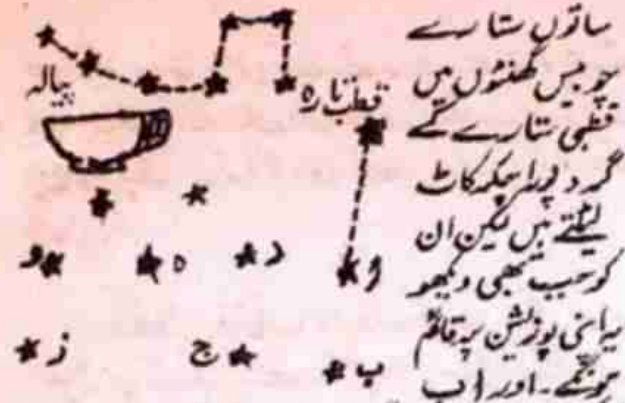 ساتوں ستارے
چوبیس گھنٹوں میں
قطبی ستارے کے
گرد پورا چکر کاٹ
لیتے ہیں لیکن ان
کو جب بھی دیکھو
یہ اپنی پوزیشن پر قائم
ہونگے۔ اور ا ب
قطب تارہ
پیالہ
ا د ہ و
ب ج ز